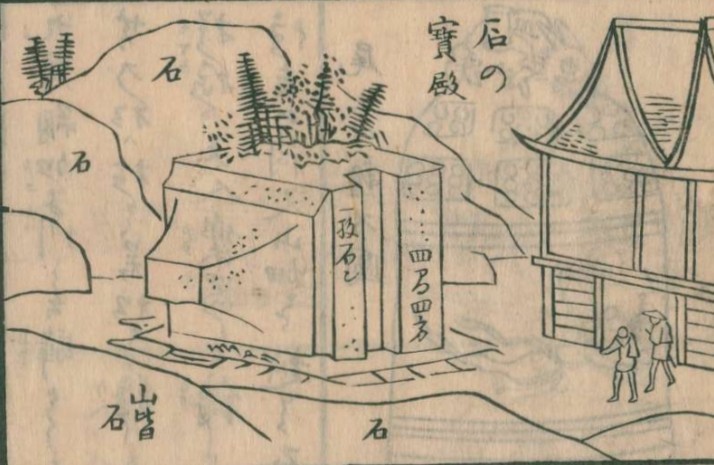 石の
寳殿
石
石
一枚石也
四間四方
山皆
石
石